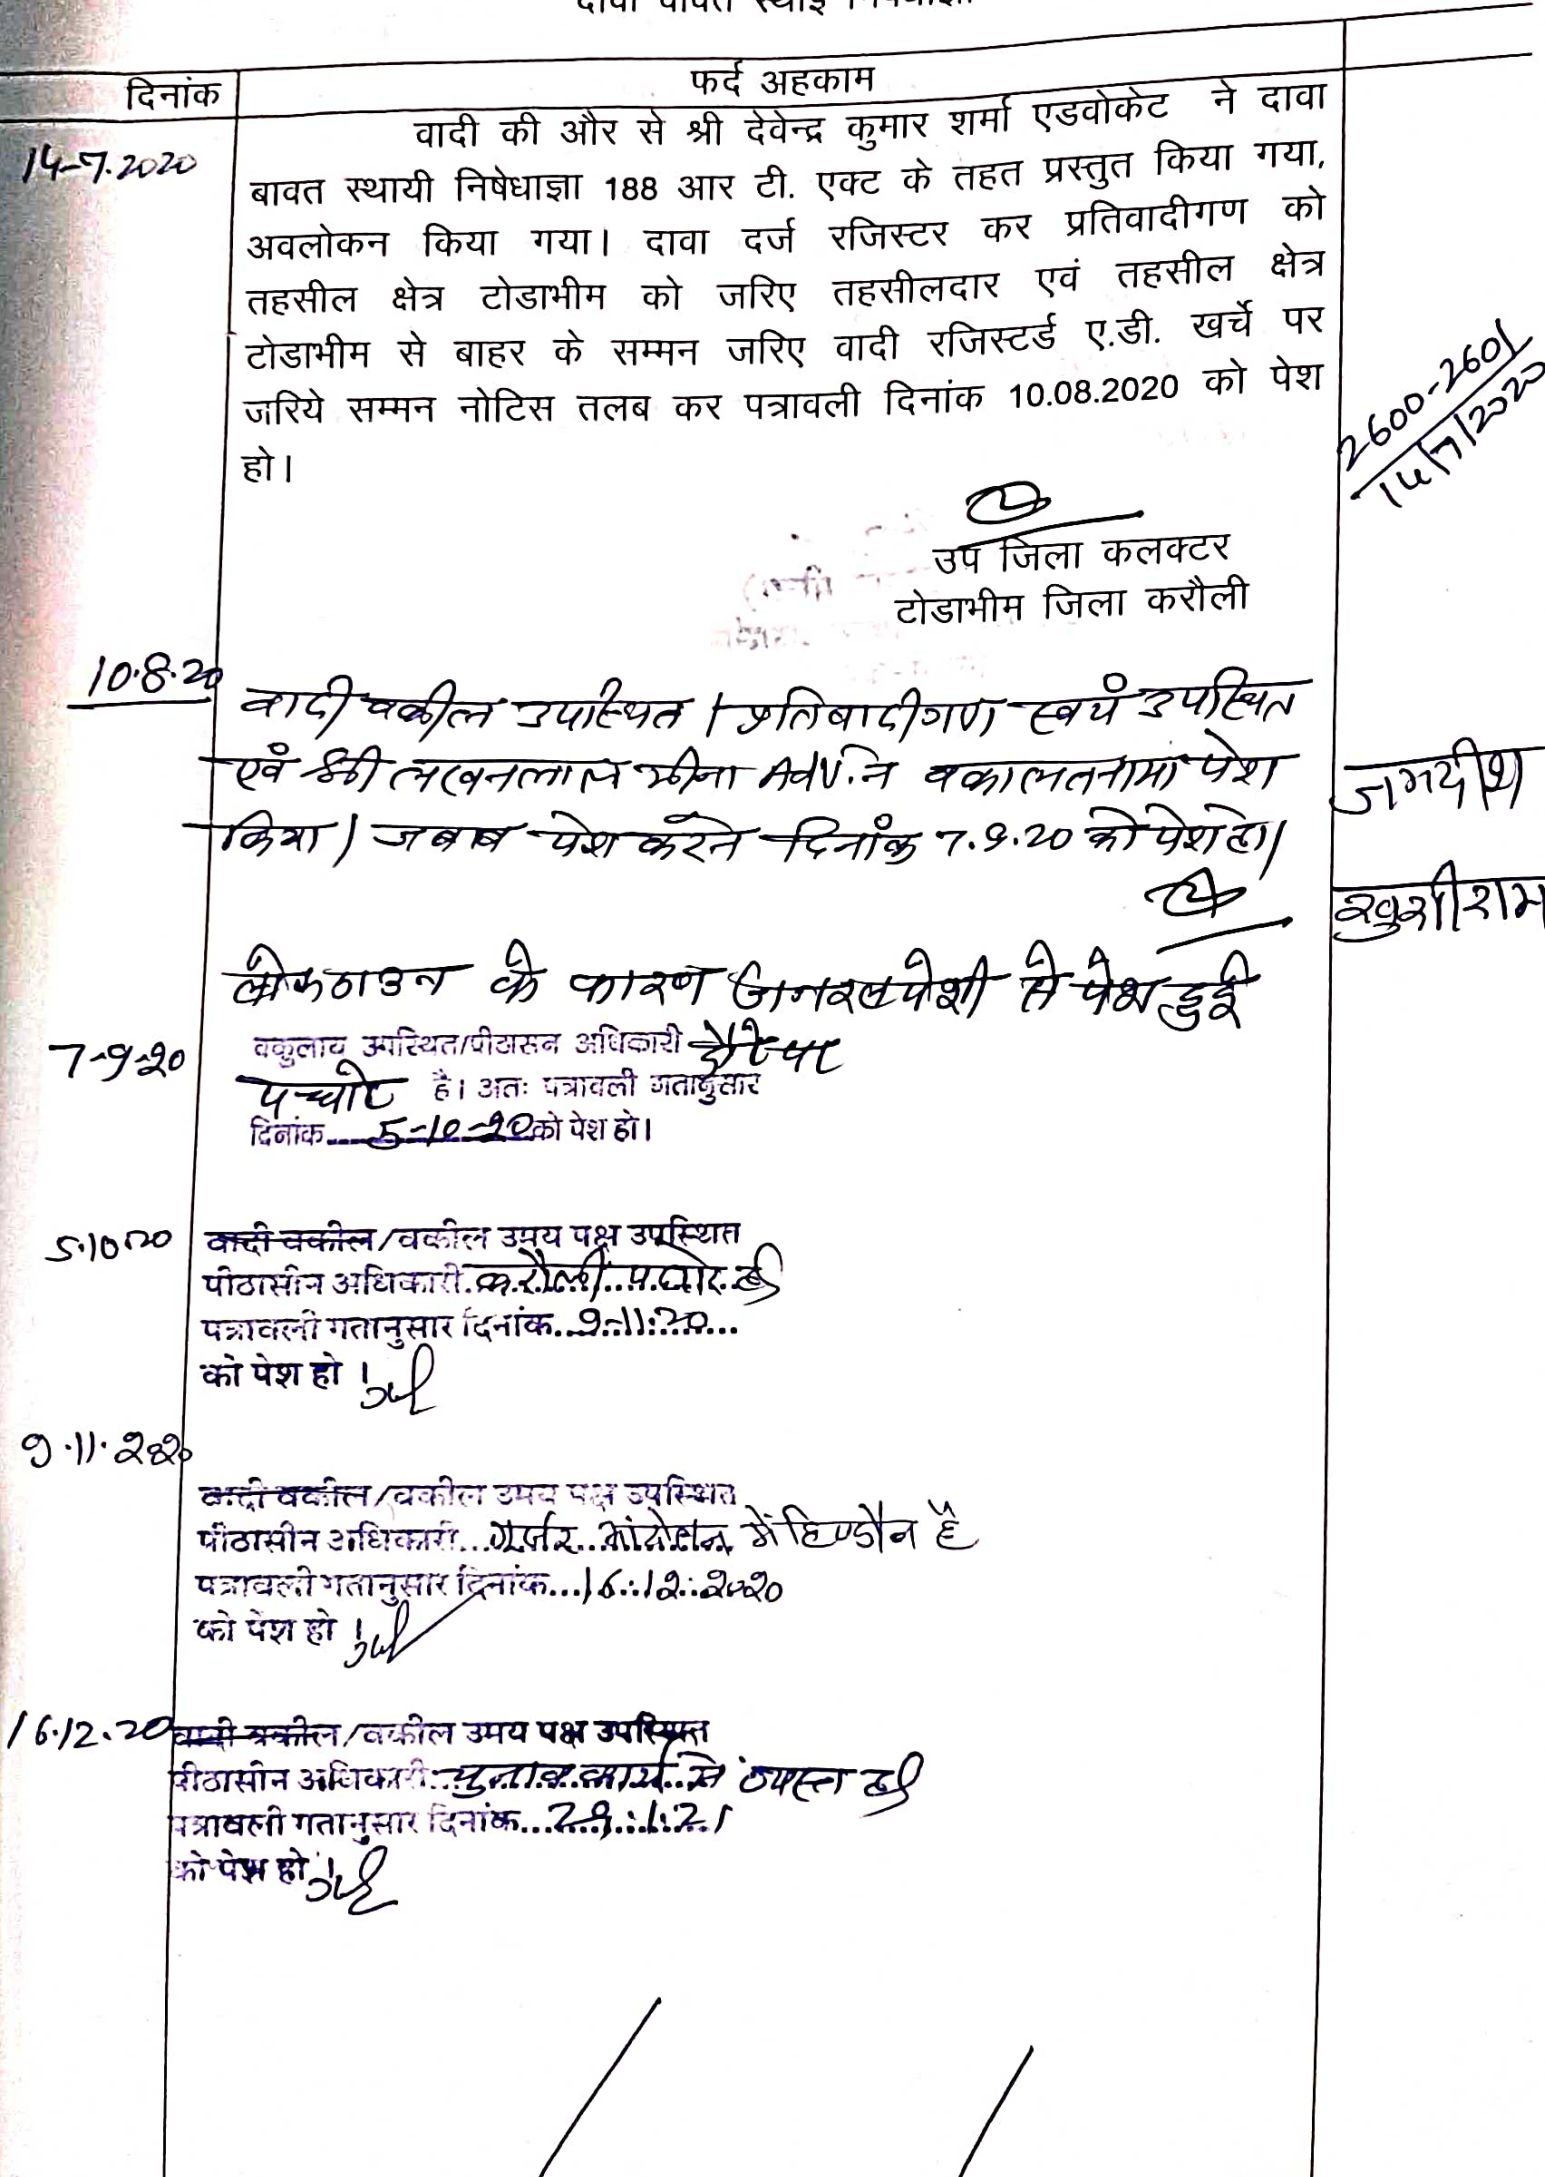 दावा बावत स्थाई निषेधाज्ञा
दिनांक
फर्द अहकाम
14-7-2020
वादी की और से श्री देवेन्द्र कुमार शर्मा एडवोकेट ने दावा
बावत स्थायी निषेधाज्ञा 188 आर टी. एक्ट के तहत प्रस्तुत किया गया,
अवलोकन किया गया। दावा दर्ज रजिस्टर कर प्रतिवादीगण को
तहसील क्षेत्र टोडाभीम को जरिए तहसीलदार एवं तहसील क्षेत्र
टोडाभीम से बाहर के सम्मन जरिए वादी रजिस्टर्ड ए.डी. खर्चे पर
जरिये सम्मन नोटिस तलब कर पत्रावली दिनांक 10.08.2020 को पेश
हो।
2600-2601
14/7/2020
उप जिला कलक्टर
टोडाभीम जिला करौली
10.8.20
वादी वकील उपस्थित। प्रतिवादीगण स्वयं उपस्थित
एवं श्री लखनलाल मीना Adv. ने वकालतनामा पेश
किया। जबाब पेश करने दिनांक 7.9.20 को पेश हो।
जगदीश
खुशीराम
लोकडाउन के कारण जनरल पेशी से पेश हुई
7-9-20
वकुलाय उपस्थित/पीठासन अधिकारी
है। अतः पत्रावली गतानुसार
दिनांक 5-10-20 को पेश हो।
5.10.20
वादी वकील/वकील उभय पक्ष उपस्थित
पीठासीन अधिकारी करौली पधारे है
पत्रावली गतानुसार दिनांक...9-11-20...
को पेश हो।
9.11.2020
वादी वकील/वकील उभय पक्ष उपस्थित
पीठासीन अधिकारी...गुर्जर आंदोलन में हिण्डौन है
पत्रावली गतानुसार दिनांक...16.12.2020
को पेश हो।
16.12.20
वादी वकील/वकील उभय पक्ष उपस्थित
पीठासीन अधिकारी चुनाव कार्य में व्यस्त है
पत्रावली गतानुसार दिनांक...29.1.21
को पेश हो।